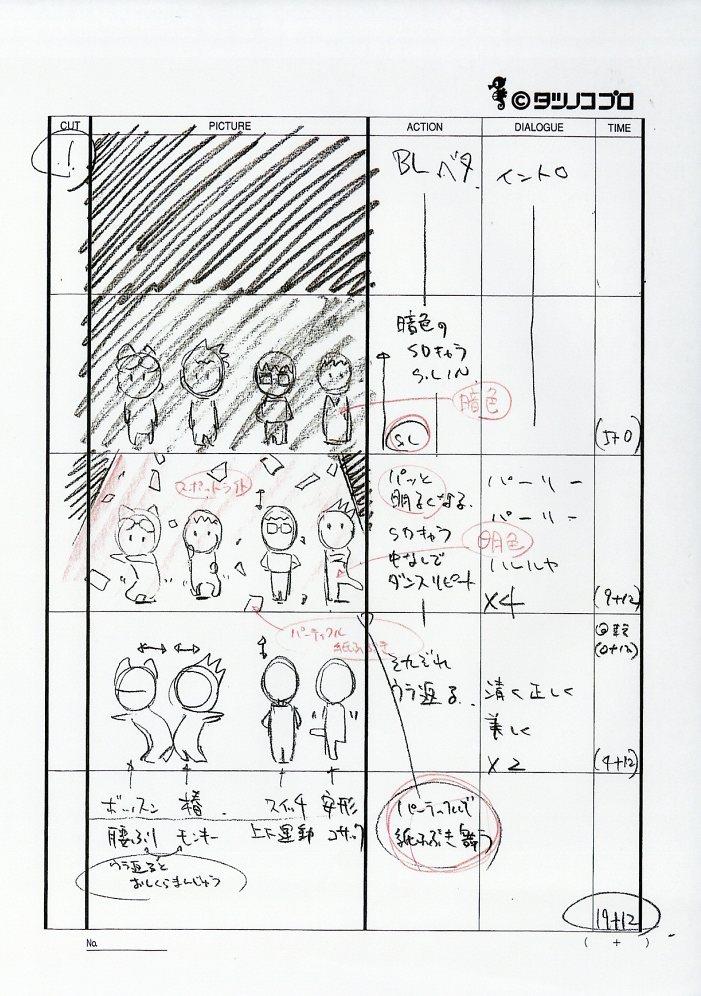 ©タツノコプロ
CUT PICTURE ACTION DIALOGUE TIME
1
BL ベタ
イントロ
暗色の
SDキャラ
S.L IN
暗色
SL
(5+0)
スポットライト
パッと
明るくなる
SDキャラ
中なしで
ダンスリピート
明色
パーリー
パーリー
ハレルヤ
×4
(9+12)
パーティクル
紙ふぶき
(0+12)
それぞれ
ウラ返る
清く正しく
美しく
×2
(4+12)
ボッスン 椿 スイッチ 安形
腰ふり モンキー 上下運動 コサック
ウラ返ると
おしくらまんじゅう
パーティクルで
紙ふぶき舞う
19+12
No.
( + )